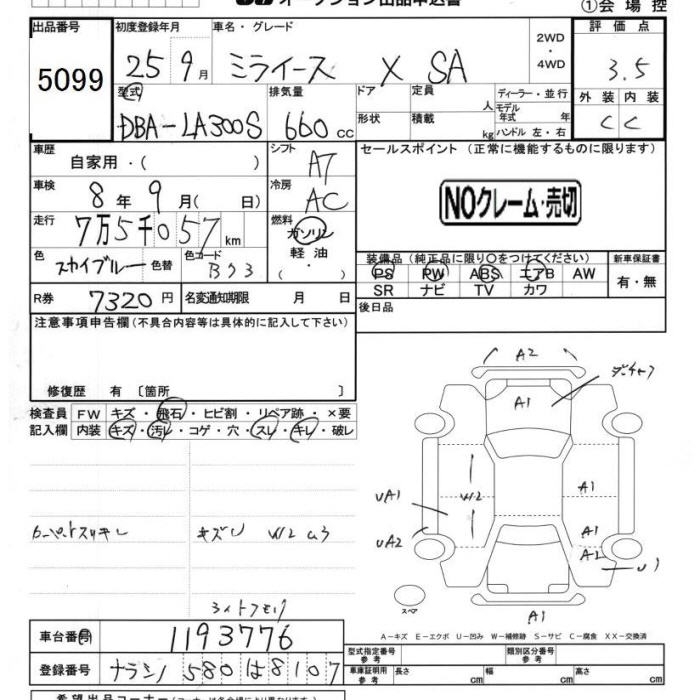 ①会場控
出品番号
5099
初度登録年月
25 9月
車名・グレード
ミライース X SA
2WD
・
4WD
評価点
3.5
型式
DBA-LA300S
排気量
660 cc
ドア
形状
定員 人
積載 kg
ディーラー・並行
モデル年式 年
ハンドル 左・右
外装 内装
C C
車歴
自家用・( )
シフト
AT
セールスポイント (正常に機能するものに限ります)
NOクレーム・売切
車検
8年 9月( 日)
冷房
AC
走行
7万5千057km
燃料
ガソリン
軽油
・( )
色
スカイブルー 色替
色コード
B93
装備品 (純正品に限り〇をつけてください)
PS PW ABS エアB AW
SR ナビ TV カワ
新車保証書
有・無
R券 7320円
名変通知期限 月 日
後日品
注意事項申告欄 (不具合内容等は具体的に記入して下さい)
修復歴 有 [箇所 ]
検査員記入欄
FW キズ・飛石・ヒビ割・リペア跡・×要
内装 キズ・汚レ・コゲ・穴・スレ・キレ・破レ
カーペットスリキレ
キズU W2 U3
A2
A1
UA1
W2
A1
UA2
A1
A2
U1
スペア
A1
車台番号 1193776
登録番号 ナラシノ 580 は 8107
A-キズ E-エクボ U-凹み W-補修跡 S-サビ C-腐食 XX-交換済
型式指定番号
参考
類別区分番号
参考
車庫証明用
参考
長さ cm
幅 cm
高さ cm